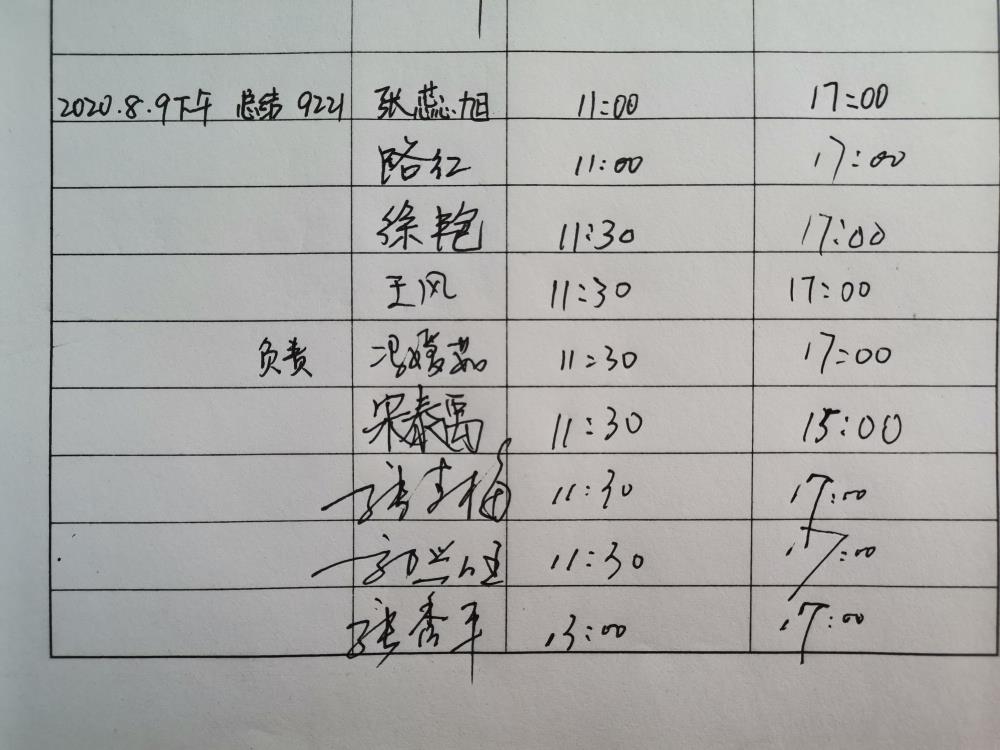 2020.8.9下午 总结 9221 张蕊旭 11:00 17:00
路红 11:00 17:00
徐艳 11:30 17:00
王风 11:30 17:00
负责 冯媛茹 11:30 17:00
宋泰禹 11:30 15:00
张青梅 11:30 17:00
11:30 17:00
张秀平 13:00 17:00